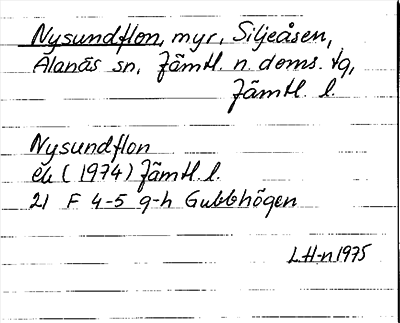 Nysundflon, myr, Siljeåsen,
Alanäs sn, Jämtl. n doms. tg,
Jämtl. l.
Nysundflon
ek (1974) Jämtl. l.
21 F 4-5 g-h Gubbhögen
LH-n 1975